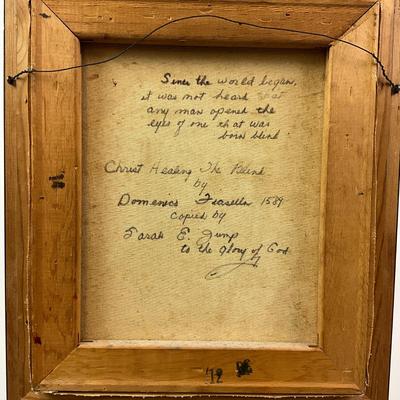 Since the world began,
it was not heard that
any man opened the
eyes of one that was
born blind
Christ Healing The Blind
by
Domenico Fiasella 1589
copied by
Sarah E. Jump
to the glory of God
'72